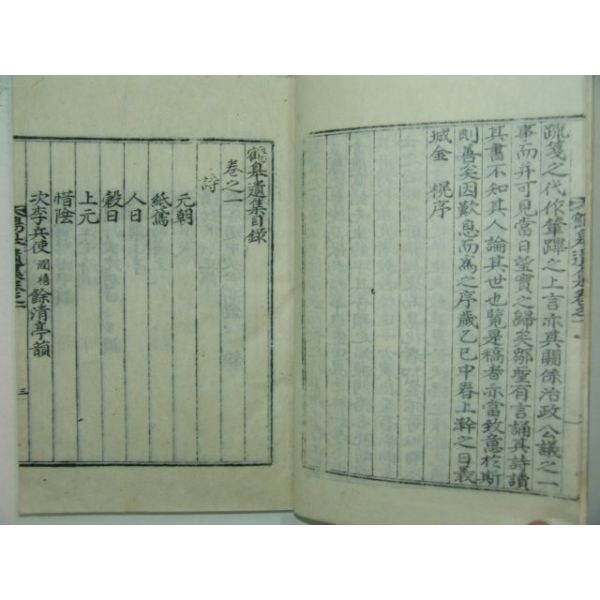 疏箋之代作輦蹕之上言亦其關係治政公議之一
事而并可見當日望實之歸矣鄒聖有言誦其詩讀
其書不知其人論其世也覽是稿者亦當致意於斯
則善矣因歎息而爲之序歲乙巳中春上澣之日義
城金 榥序
鶴皐遺集目錄
卷之一
詩
元朝
紙鳶
人日
穀日
上元
惜陰
次李兵使國禧餘淸亭韻
三